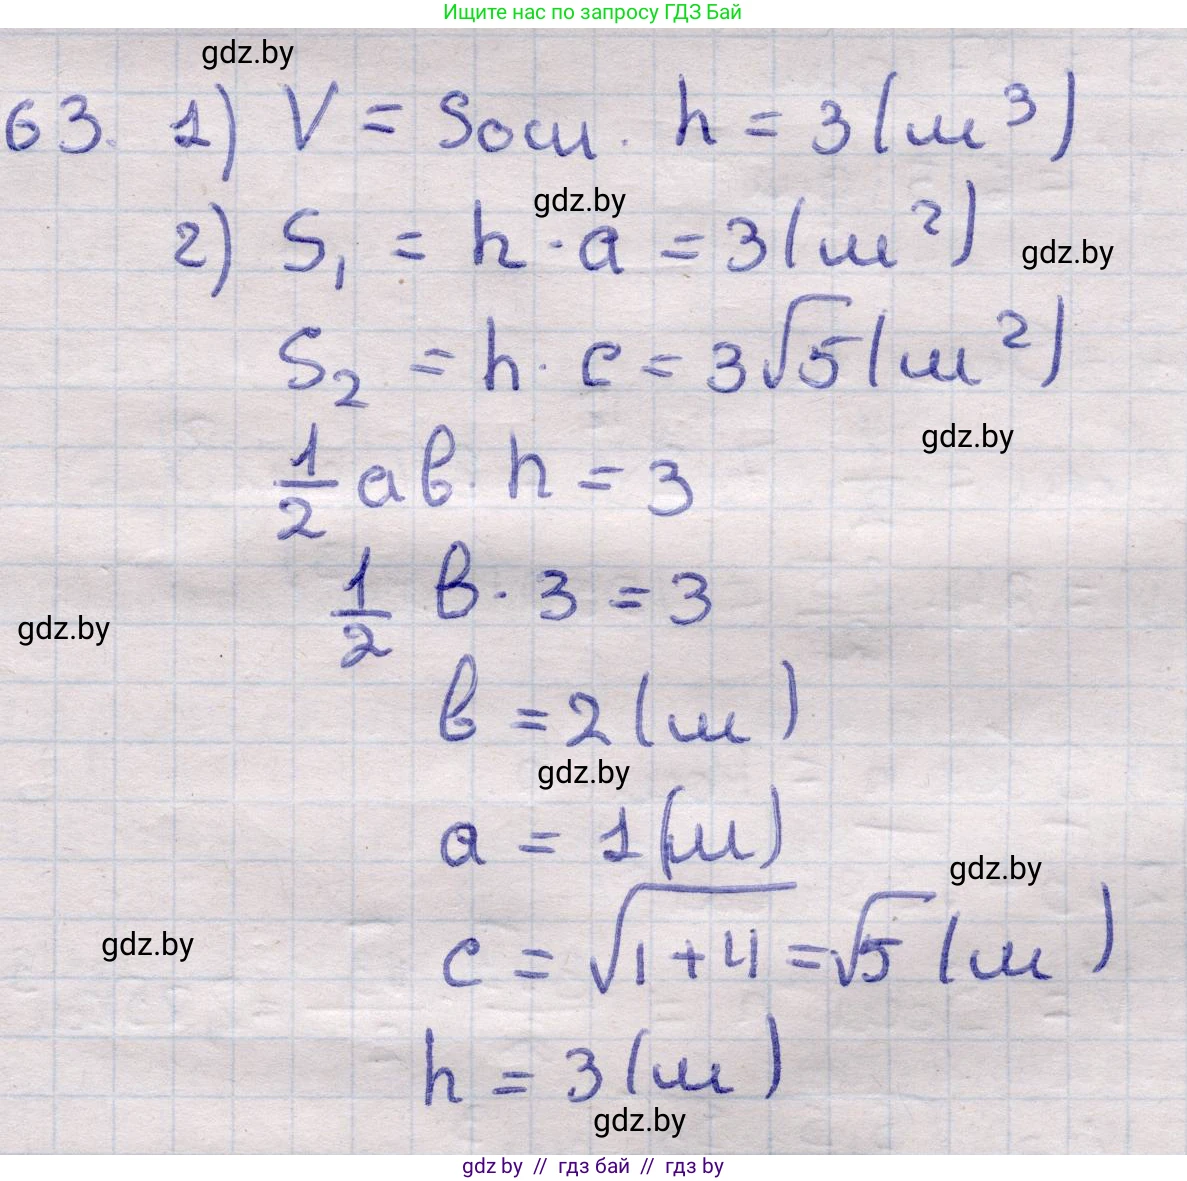 Ищите нас по запросу ГДЗ Бай
gdz.by
63. 1) V = Sосн. h = 3 (м³)
gdz.by
2) S₁ = h · a = 3 (м²)
gdz.by
S₂ = h · c = 3√5 (м²)
gdz.by
1/2 ab · h = 3
1/2 b · 3 = 3
gdz.by
b = 2 (м)
gdz.by
a = 1 (м)
gdz.by
c = √(1+4) = √5 (м)
gdz.by
h = 3 (м)
gdz.by
gdz by // гдз бай // гдз by